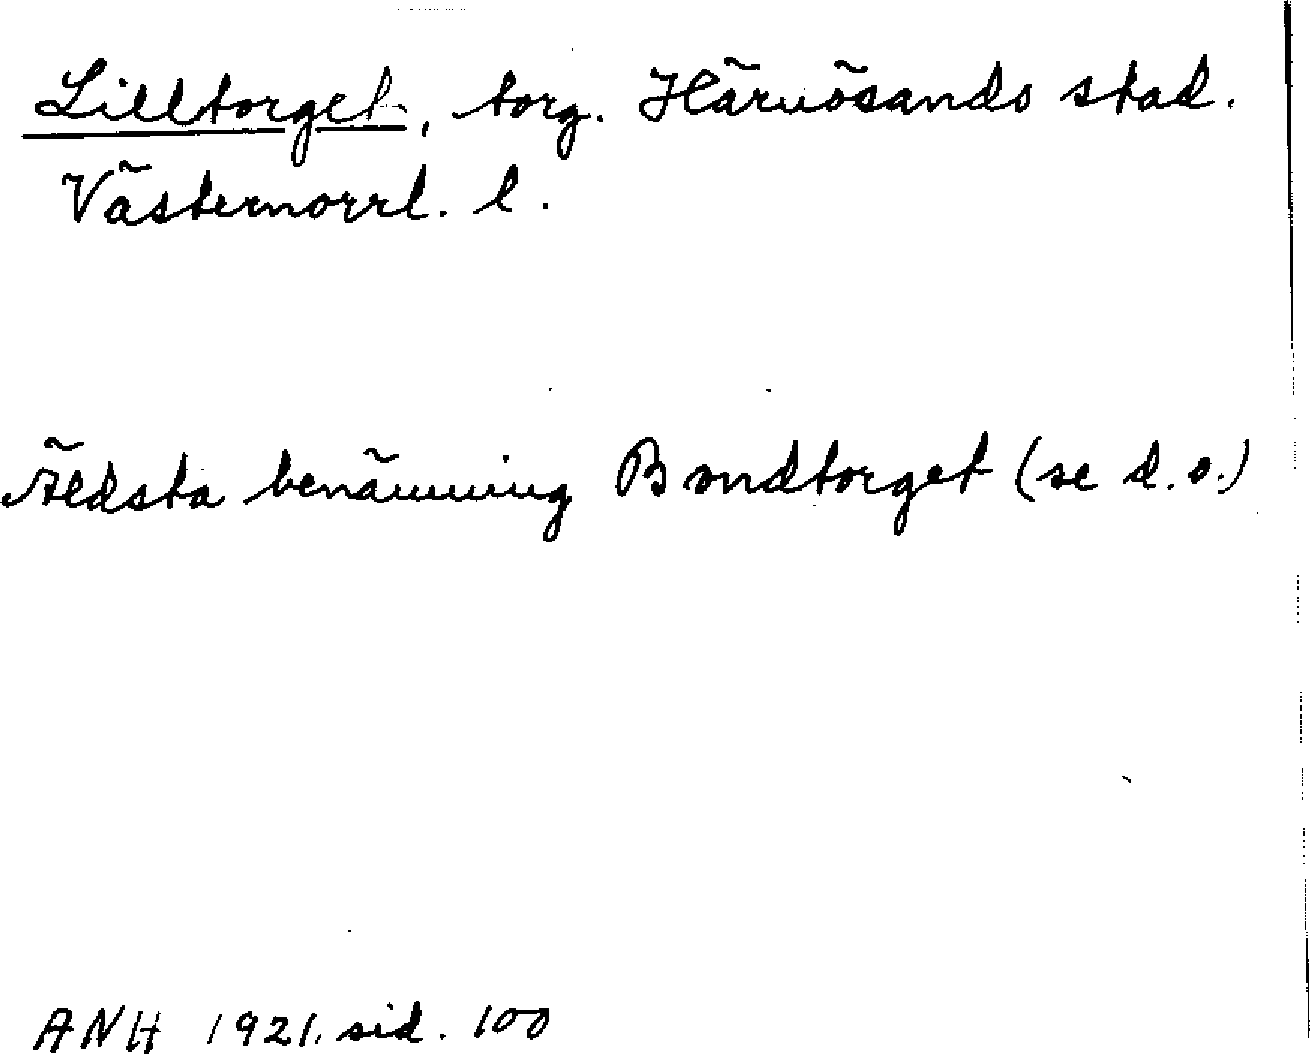 Lilltorget, torg. Härnösands stad.
Västernorrl. l.
Äldsta benämning Bondtorget (se d.o.)
ANH 1921. sid. 100